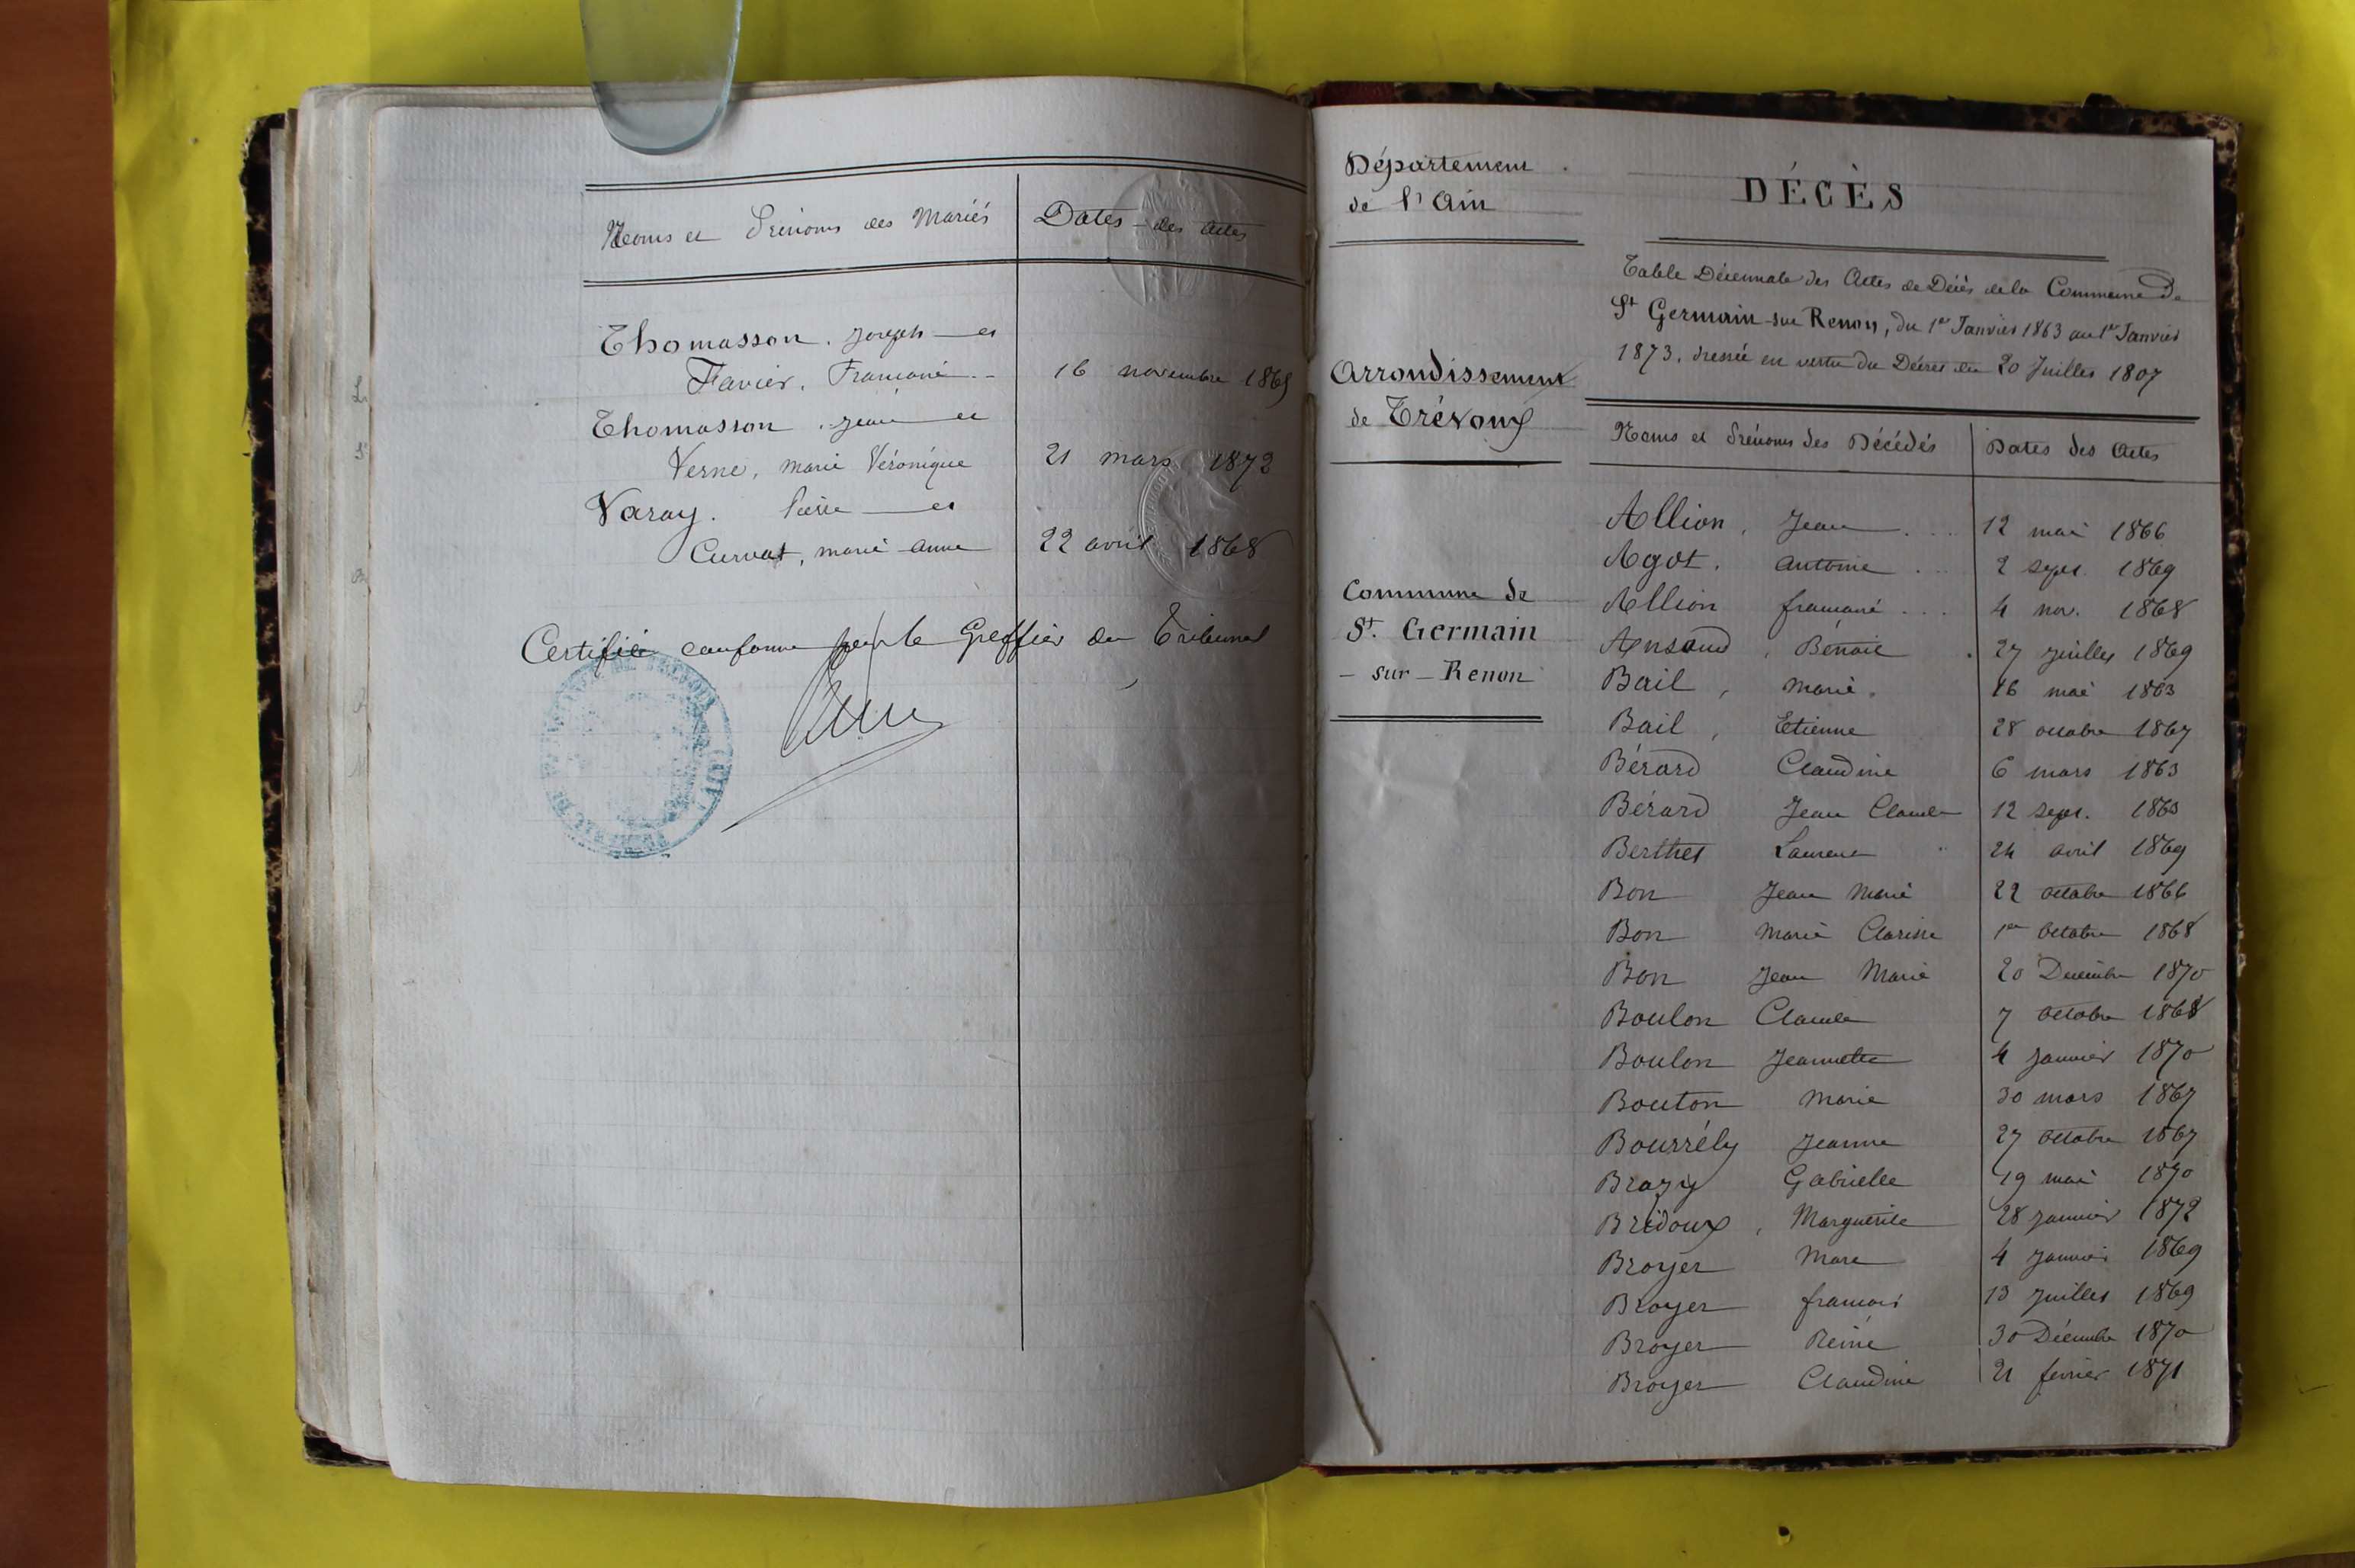 Noms et Prénoms des Mariés Dates des Actes
Thomasson, Joseph et
Favier, Françoise 16 novembre 1865
Thomasson, Jean et
Verne, marie Véronique 21 mars 1872
Varay. Pierre et
Curvat, marie-Anne 22 avril 1868
Certifié conforme par le Greffier du Tribunal
Département
de l'Ain
Arrondissement
de Trévoux
Commune de
St. Germain
- sur - Renon
DÉCÈS
Table Décennale des Actes de Décès de la Commune de
St Germain-sur Renon, du 1er Janvier 1863 au 1er Janvier
1873, dressée en vertu du Décret du 20 Juillet 1807
Noms et Prénoms des Décédés Dates des Actes
Allion, Jean 12 mai 1866
Agot, Antoine 2 sept. 1869
Allion françois 4 nov. 1868
Benoit 27 juillet 1869
Bail, marie 16 mai 1863
Bail, Etienne 28 octobre 1867
Bérard Claudine 6 mars 1863
Bérard Jean Claude 12 sept. 1863
Berthet Laurent 24 avril 1869
Bon Jean Marie 22 octobre 1866
Bon Marie Clarisse 1er Octobre 1868
Bon Jean Marie 20 Décembre 1870
Boulon Claude 7 octobre 1868
Boulon Jeannette 4 janvier 1870
Bouton Marie 30 mars 1867
Bourrély Jeanne 27 octobre 1867
Brazy Gabrielle 19 mai 1870
Bridoux, Marguerite 28 janvier 1872
Broyer Marc 4 janvier 1869
Broyer françois 13 juillet 1869
Broyer Reine 30 Décembre 1870
Broyer Claudine 21 février 1871